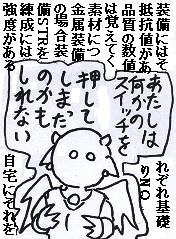 装備にはそれぞれ基礎
抵抗値がありNQ
品質の数値
は覚えてく
素材につ
金属装備
の場合装
備STRを
練成には
強度がある
自宅にそれを
あたしは
何かの
スイッチを
押して
しまった
のかも
しれない